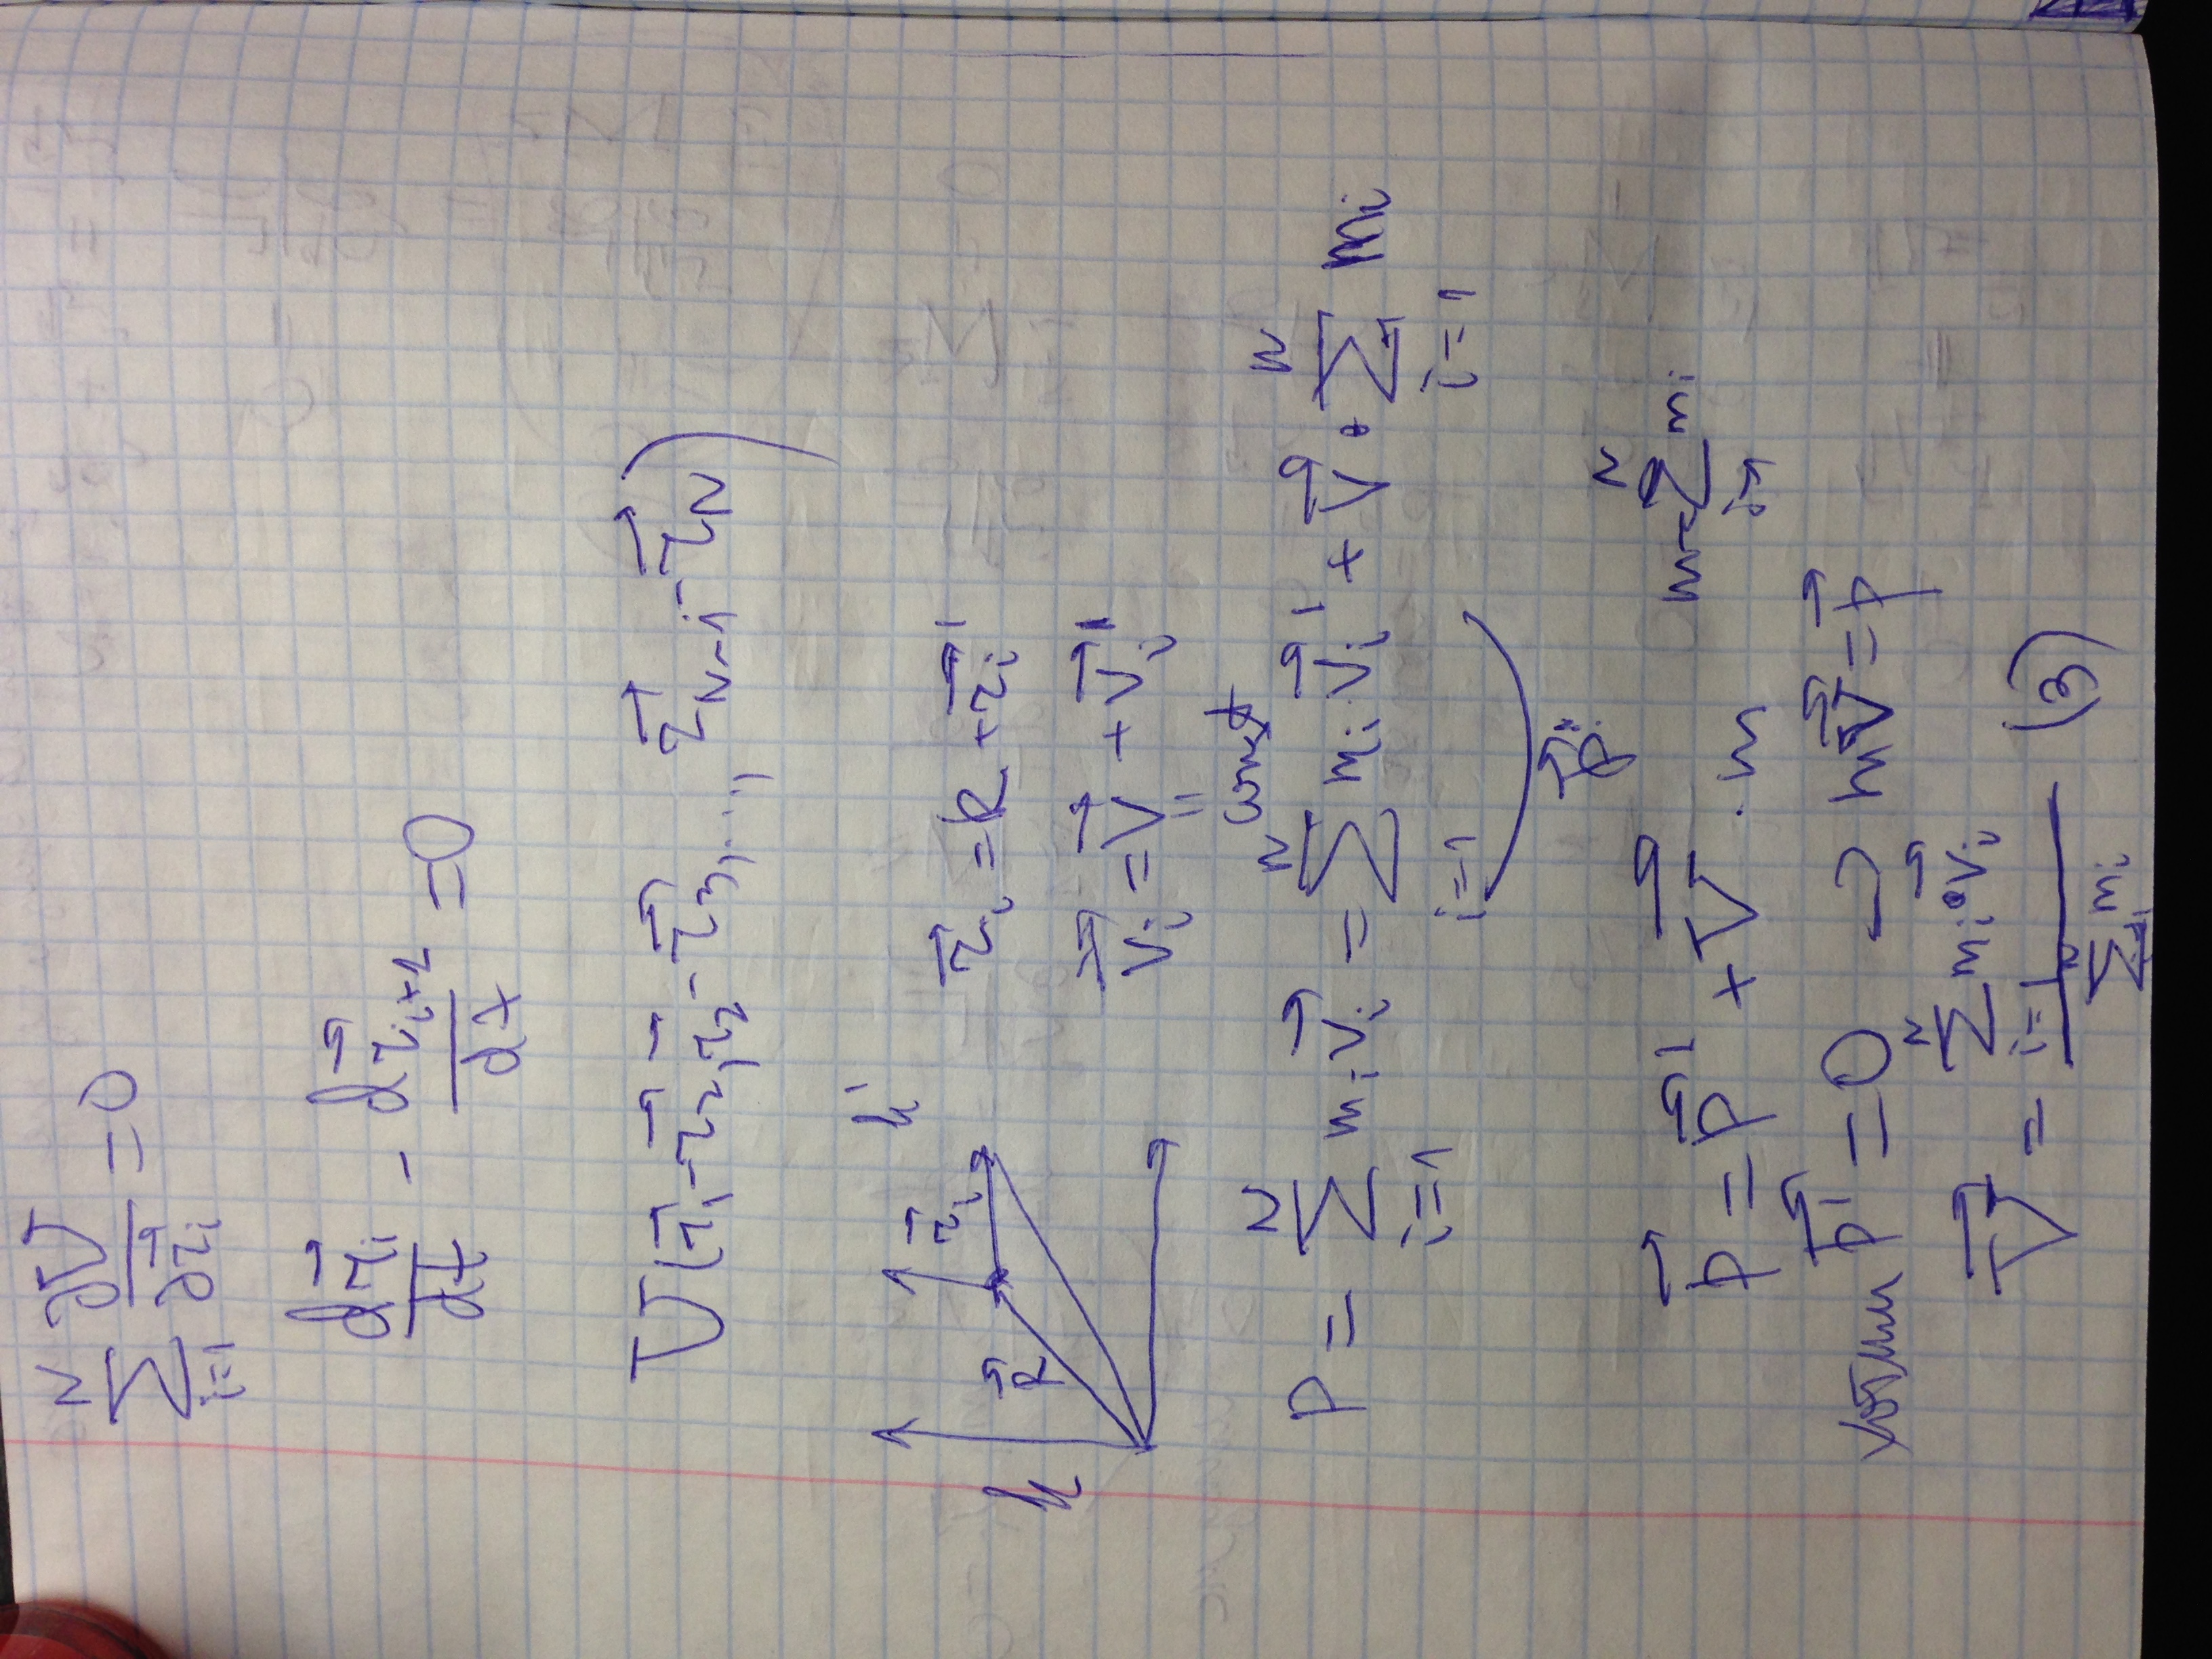 \sum_{i=1}^{N} \frac{\partial U}{\partial \vec{r}_i} = 0
\frac{\partial \vec{r}_i}{dt} - \frac{\partial \vec{r}_{i+1}}{dt} = 0
U(\vec{r}_1 - \vec{r}_2, \vec{r}_2 - \vec{r}_3, ..., \vec{r}_{N-1} - \vec{r}_N)
k \vec{R} \vec{r}_i' k' \vec{r}_i = R + \vec{r}_i'
\vec{v}_i = \vec{V} + \vec{v}_i'
= const
p = \sum_{i=1}^{N} m_i \vec{v}_i = \sum_{i=1}^{N} m_i \cdot \vec{v}_i' + \vec{V} \cdot \sum_{i=1}^{N} m_i
\vec{p}'
\vec{p} = \vec{p}' + \vec{V} \cdot m m = \sum_{i=1}^{N} m_i
хотим \vec{p}' = 0 ⊃ m\vec{V} = \vec{p}
\vec{V} = \frac{\sum_{i=1}^{N} m_i \cdot \vec{v}_i}{\sum_{i=1}^{N} m_i} (3)